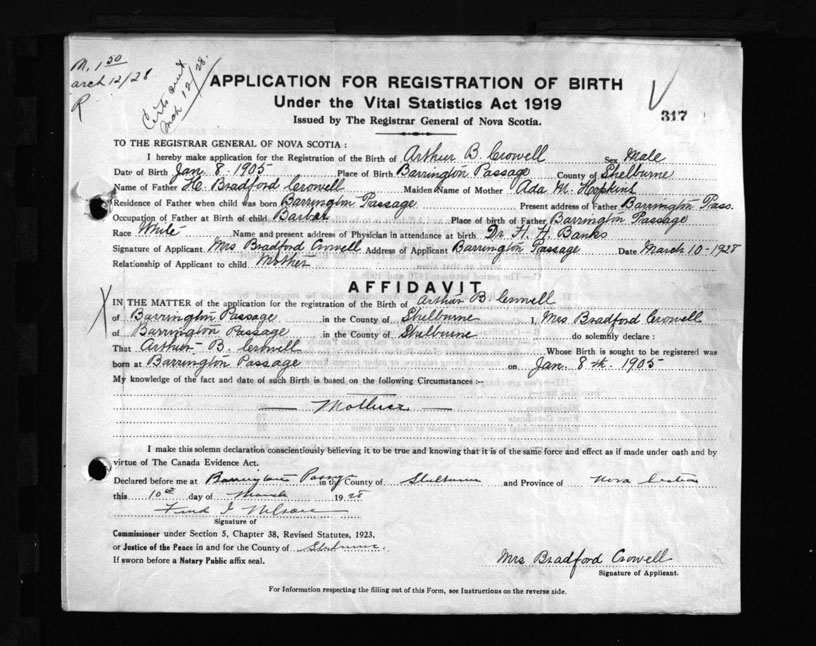 M. 1 50
arch 12/28
R
Mch 12/28.
APPLICATION FOR REGISTRATION OF BIRTH
Under the Vital Statistics Act 1919
Issued by The Registrar General of Nova Scotia.
317
TO THE REGISTRAR GENERAL OF NOVA SCOTIA :
I hereby make application for the Registration of the Birth of Arthur B. Crowell Sex Male
Date of Birth Jan. 8. 1905 Place of Birth Barrington Passage County of Shelburne
Name of Father H. Bradford Crowell Maiden Name of Mother Ada M. Hopkins
Residence of Father when child was born Barrington Passage Present address of Father Barrington Pass.
Occupation of Father at Birth of child Barber Place of birth of Father Barrington Passage
Race White Name and present address of Physician in attendance at birth Dr. H. H. Banks
Signature of Applicant Mrs Bradford Crowell Address of Applicant Barrington Passage Date March 10-1928
Relationship of Applicant to child Mother
AFFIDAVIT
IN THE MATTER of the application for the registration of the Birth of Arthur B. Crowell
of Barrington Passage in the County of Shelburne I, Mrs Bradford Crowell
of Barrington Passage in the County of Shelburne do solemnly declare :
That Arthur B. Crowell Whose Birth is sought to be registered was
born at Barrington Passage on Jan. 8th. 1905
My knowledge of the fact and date of such Birth is based on the following Circumstances :-
— Mother —
I make this solemn declaration conscientiously believing it to be true and knowing that it is of the same force and effect as if made under oath and by
virtue of The Canada Evidence Act.
Declared before me at Barrington Passage in the County of Shelburne and Province of Nova Scotia
this 10th day of March 1928
Signature of
Commissioner under Section 5, Chapter 38, Revised Statutes, 1923,
or Justice of the Peace in and for the County of Shelburne.
If sworn before a Notary Public affix seal.
Mrs Bradford Crowell
Signature of Applicant.
For Information respecting the filling out of this Form, see Instructions on the reverse side.